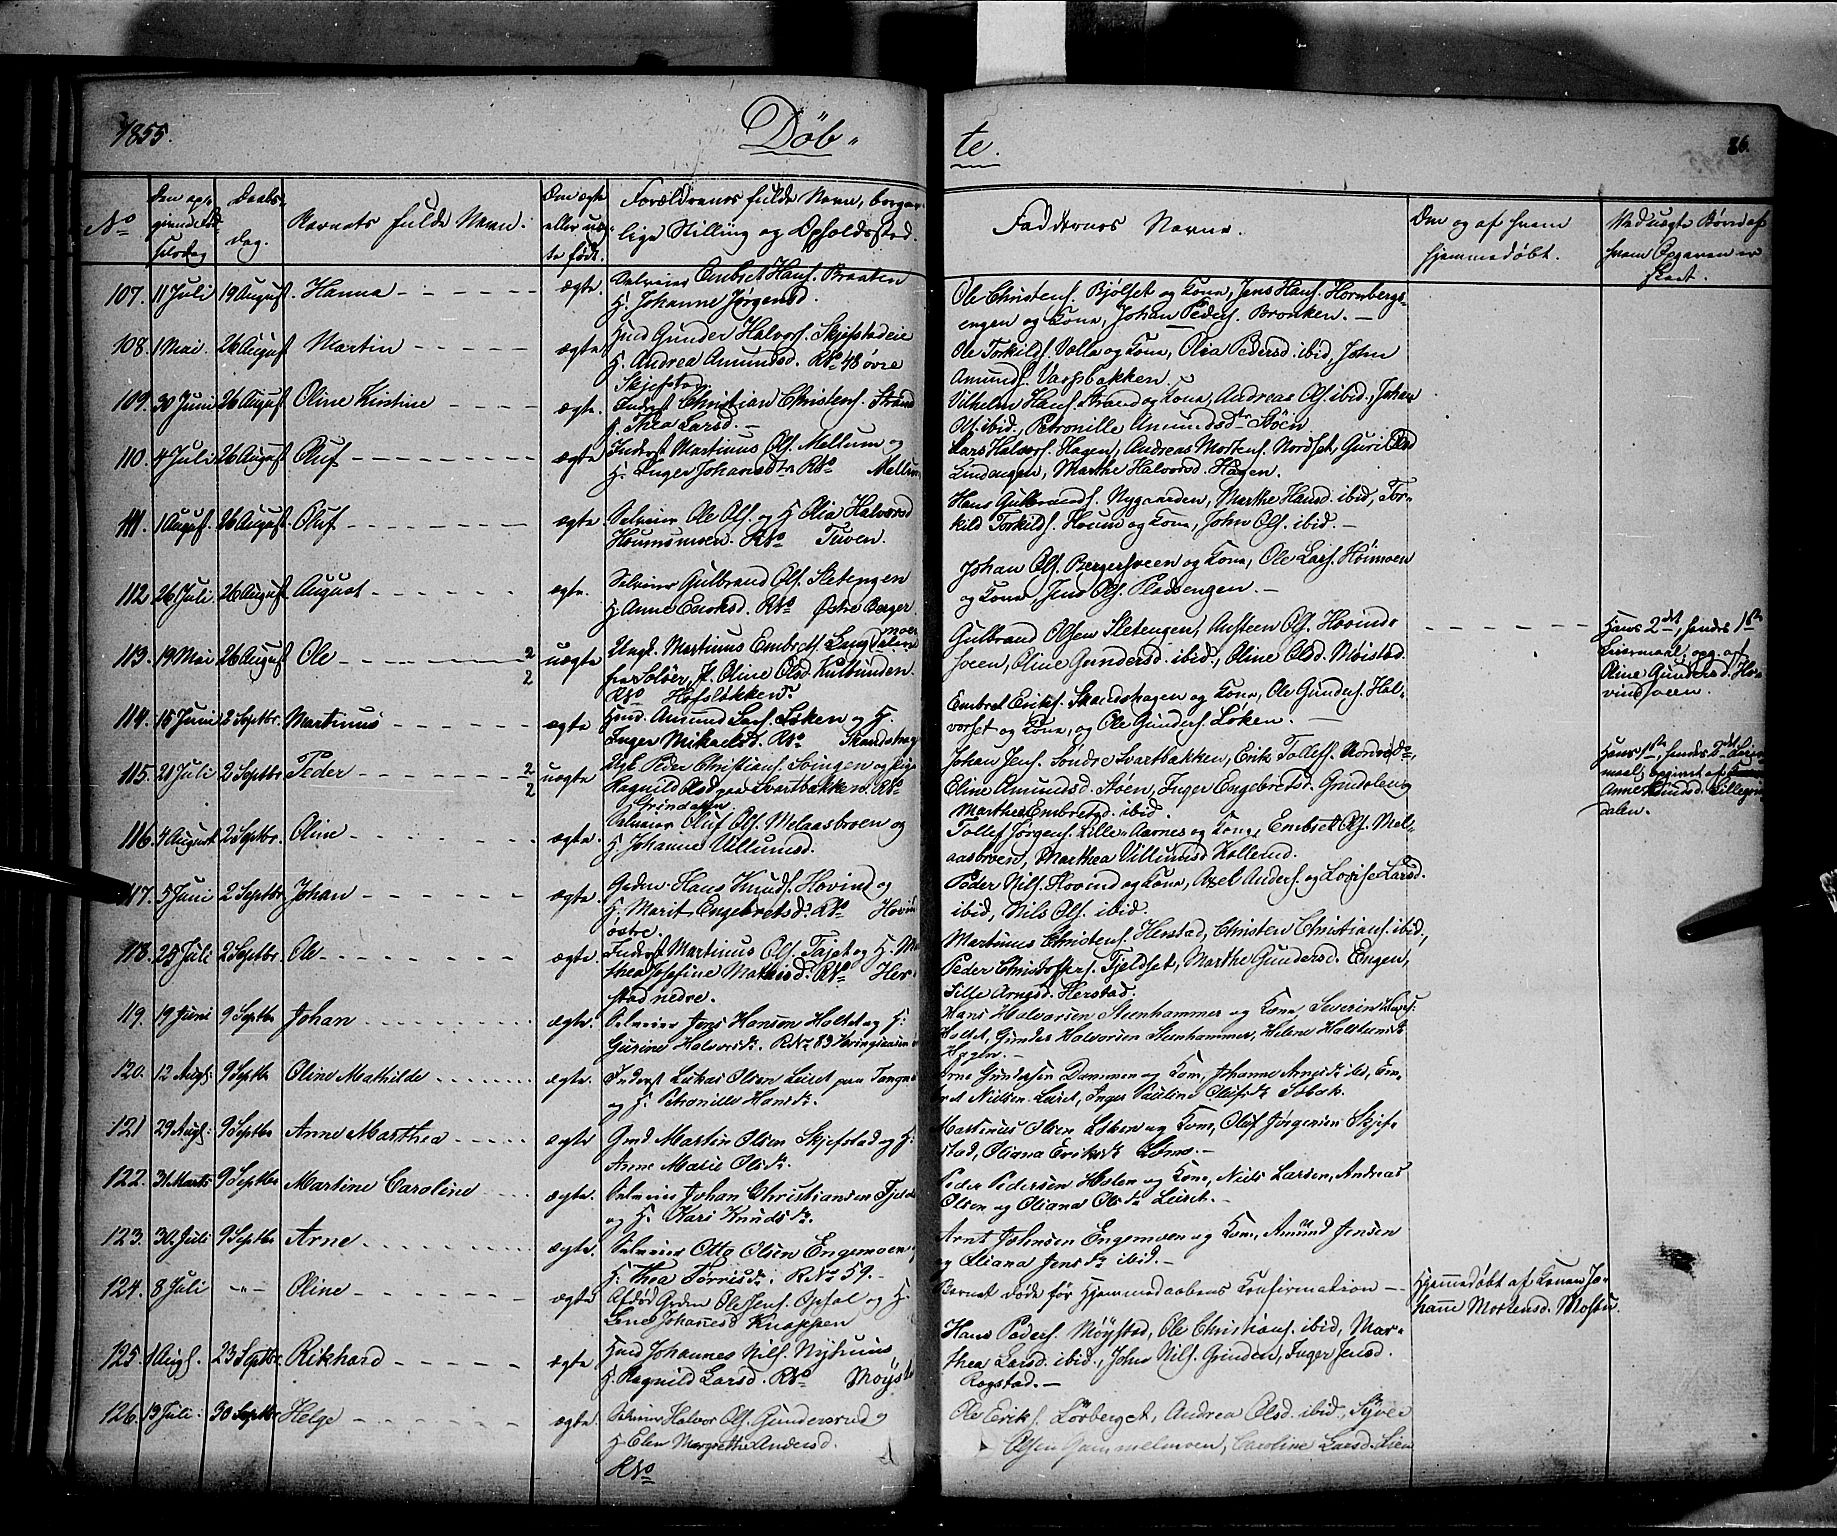 1855.
Døb-
te.
86.
No
Den op-
givne
Fødselsdag
Daabs-
dag.
Barnets fulde Navn.
Om ægte
eller uæg-
te født.
Forældrenes fulde Navn, borger-
lige Stilling og Opholdssted.
Faddernes Navne.
Om og af hvem
hjemmedøbt.
Ved uægte Børn af
hvem Opgaven er
skeet.
107. 11 Juli 19 August Hanna ægte. Selveier Embret Hans. Braaten
H. Johanne Jørgensd.
Ole Christens. Bjølset og Kone, Jens Hans. Hornbergs-
engen og Kone, Johan Peders. Bronken.
108. 1 Mai. 26 August Martin ægte Husd Gunder Halvors. Skjefstadeie
H. Andrea Amundsd. RNo 48 øvre
Skjefstad.
Ole Torkilds. Volla og Kone, Olia Pedersd. ibid, John
Amunds. Varpbakken.
109. 30 Juni 26 August Oline Kirstine ægte. Inderst Christian Christens. Strand
H. Thea Larsd.
Vilhelm Hans. Strand og Kone, Andreas Ols. ibid, Johan
Ols. ibid., Petronille Amundsdtr Støen
110. 4 Juli 26 August Oluf ægte Inderst Martinus Ols. Mellum og
H. Inger Johansdtr RNo Mellum
Lars Halvors. Hagen, Andreas Mortens. Nordset, Guri
Lindengen, Marthe Halvorsd. Hagen.
111. 1 August. 26 August Oluf ægte. Selveier Ole Ols. og H. Olia Halvorsd
Houmsmoen. RNo Tuven.
Hans Gulbrands. Nygaarden, Marthe Hansd. ibid, Tor-
kild Torkilds. Houm og Kone, John Ols. ibid.
112. 26 Juli 26 August August ægte. Selveier Gulbrand Ols. Sletengen
H. Anne Enoksd. RNo Østre Berger
Johan Ols. Bergersveen og Kone, Ole Lars. Høimoen
og Kone, Jens Ols. Pladsengen.
113. 19 Mai 26 August Ole 2 2 uægte Ungk. Martinus Embrets.
fra Solør, P. Oline Olsd. Kulbunden.
RNo Hofsløkken.
Gulbrand Olsen Sletengen, Austeen Ols. Hovind-
sveen, Oline Gundersd. ibid., Oline Olsd. Møistad.
Hans 2det, hendes 1ste
Leiermaal, opg. af
Oline Gundersd. Ho-
vindsveen.
114. 15 Juni 2 Septbr. Martinus ægte Husd. Amund Lars. Løken og H.
Inger Mikaelsd. RNo Skandshag
Embret Eriks. Skandshagen og Kone, Ole Gunders. Hal-
vorset og Kone, og Ole Gunders. Løken.
115. 21 Juli 2 Septbr Peder 2 2 uægte Peder Christians. Svingen og Pige
Ragnild Olsd paa Svartbakken. RNo
Grindalen.
Johan Jens. Søndre Svartbakken, Erik Tollefs. Nordre do,
Eline Amundsd. Støen, Inger Engebretsd. Grindalen,
Marthea Embretsd. ibid.
Hans 1ste, hendes 2det Leier-
maal; opgivet af
Anne Lillegrin-
dalen.
116. 4 August 2 Septbr. Oline ægte. Selveier Oluf Ols. Melaasbroen og
H. Johanne Villumsd.
Tollef Jørgens. Lille-Aarnes og Kone, Embret Ols. Mel-
aasbroen, Marthea Villumsd Kollerud.
117. 5 Juni 2 Septbr Johan ægte. Grdm. Hans Knuds. Hovind og
H. Marit Engebretsd. RNo Hovin
østre.
Peder Nils. Hovind og Kone, Axel Anders. og Lovise Larsd.
ibid, Nils Ols. ibid.
118. 25 Juli 2 Septbr. Ole ægte. Inderst Martinus Ols. Tajet og H. Ma
thea Josefine Mathisd. RNo Her-
stad nedre.
Martinus Christens. Herstad, Christen Christians. ibid,
Peder Christoffers. Fjeldset, Marthe Gundersd. Engen,
Sille Arnesd. Herstad.
119. 19 Juni 9 Septbr Johan ægte. Selveier Jens Hansen Holtet og H:
Gurine Halvorsdr. RNr 83
Hans Halvorsen Steenhammer og Kone, Severin Hans.
Holtet, Gunder Halvorsen Steenhammer, Helene Halstensdr
Hagen.
120. 12 Augs. 9 Septbr Oline Mathilde ægte. Inderst Lukas Olsen Leiret paa Tangen
og H. Petronille Hansdr.
Arne Gundersen Dammen og Kone, Johanne Arnesdr ibid, Em-
ret Nielsen Leiret, Inger Pauline Olufsdr Sobak.
121 29 Augs: 9 Septbr Anne Marthea ægte Grmd Martin Olsen Skjefstad og H:
Anne Marie Olsdr.
Martinus Olsen Løken og Kone, Oluf Jørgensen Skjef-
stad, Oliana Eriksdr
122. 31 Marts 9 Septbr Martine Caroline ægte. Selveier Johan Christiansen Fjelds
og H. Kari Knudsdr.
Peder Pedersen Holen og Kone, Niels Larsen, Andreas
Olsen og Oliana Olsdr Leiret.
123. 30 Juli 9 Septbr Arne ægte. Selveier Otto Olsen Engemoen,
H. Thea Torrisdr. RNr 59.
Arnt Johnsen Engemoen og Kone, Amund Jensen
og Oliana Jensdr ibid.
124. 8 Juli -"- Oline ægte Afdød Grdm Ole Jens. Opsal og H.
Lene Johannesd Knappen
Barnet døde før Hjemmedaabens Confirmation
Hjemmedøbt af Konen Jo-
hanne Mortensd. Mostu.
125. 1 Augs. 23 Septbr Rikhard ægte Husd Johannes Nils. Nyhuus
H. Ragnild Larsd. RNo Møyst
Hans Peders. Møystad, Ole Christians. ibid, Mar-
thea Larsd. ibid., John Nils. Grinden, Inger Jensd.
Rogstad.
126. 13 Juli. 30 Septbr Helge ægte. Selveier Halvor Ols. Gundersrud
H. Elen Margrethe Andersd.
RNo
Ole Eriks. Lørberget, Andrea Olsd. ibid, Syver
Olsen Gammelmoen, Caroline Larsd. Lien